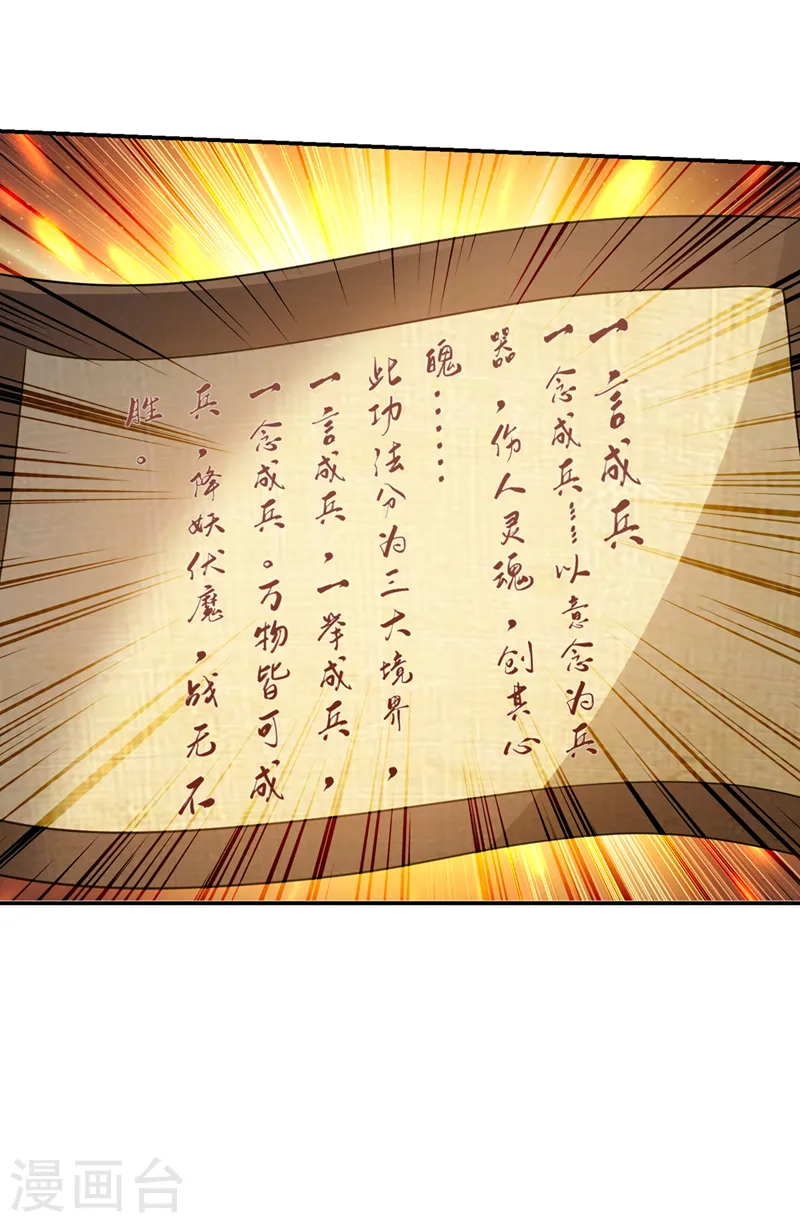 一言成兵
一念成兵……以意念为兵
器，伤人灵魂，创其心
魄……
此功法分为三大境界，
一言成兵，一举成兵，
一念成兵。万物皆可成
兵，降妖伏魔，战无不
胜。
漫画台